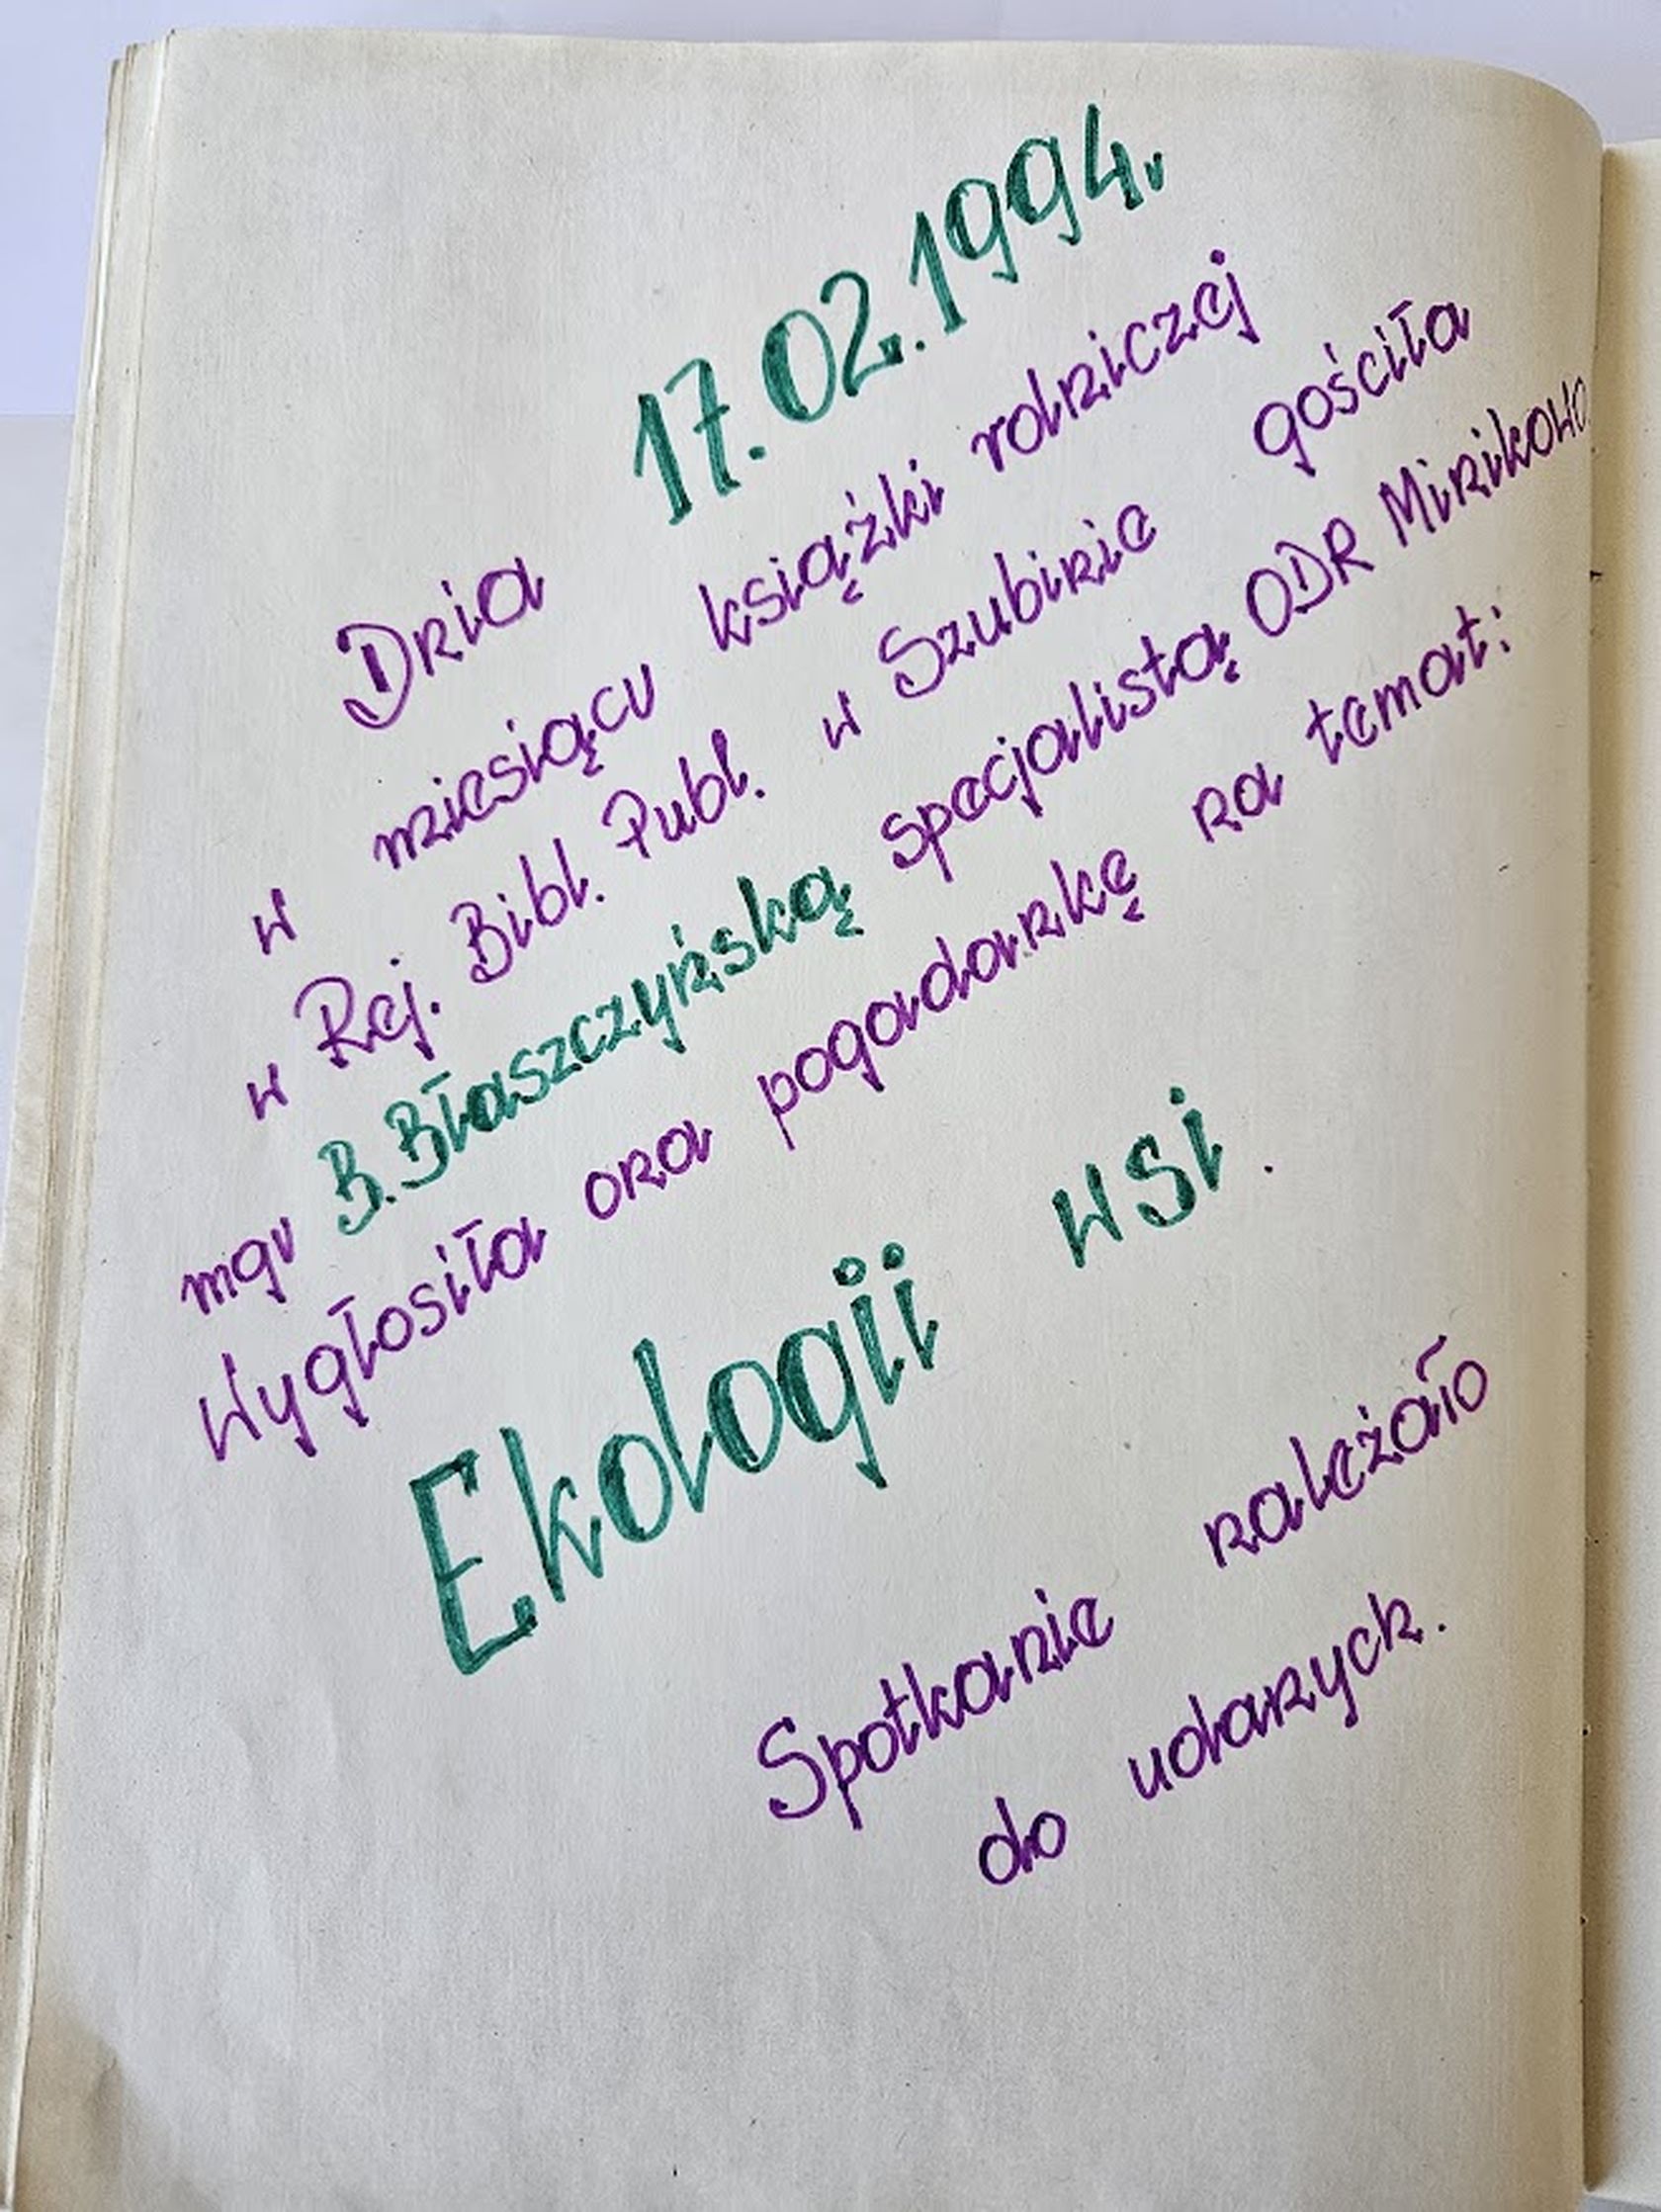 Dnia 17.02.1994r
w miesiącu książki rolniczej
w Rej. Bibl. Publ. w Szubinie gościła
mgr B. Błaszczyńską specjalistą ODR Minikowo
Wygłosiła ona pogadankę na temat:
Ekologii wsi.
Spotkanie należało
do udanych.